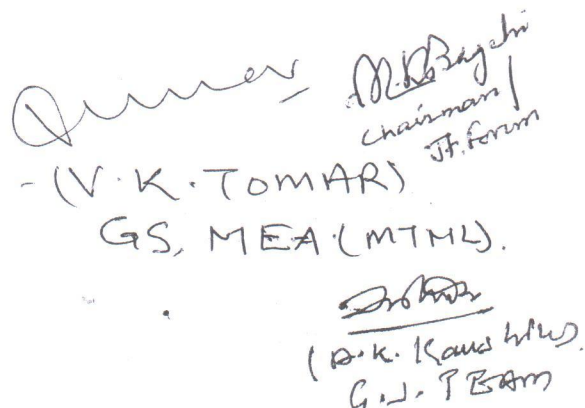 M.K. Bagchi
Chairman
Jt. Forum
(V.K. TOMAR)
GS, MEA (MTNL).
(A.K. Kaushik)
G.S. TEAM